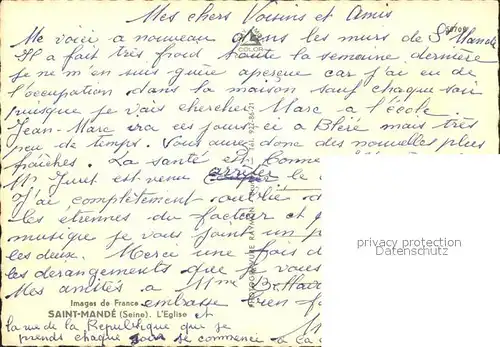 Mes chers Voisins et Amis
Me voici a nouveau dans les murs de St Mandé
Il a fait très froid toute la semaine dernière
je ne m'en suis guère aperçue car j'ai eu de
l'occupation dans la maison sauf chaque soir
puisque je vais chercher Marc a l'école
Jean-Marc ira ces jours ci a Bléré mais très
peu de temps. Vous aurez donc des nouvelles plus
fraîches. La santé est bonne
Mr Juret est venu le
J'ai complètement oublié
les étrennes du facteur et
musique je vous joint un
les deux. Merci une fois
les dérangements que je vous
Mes amitiés a Mme
embrasse bien
Images de France
SAINT-MANDÉ (Seine). L'Eglise
et
la rue de la République que je
prends chaque jour se commence a la
COLOR
privacy protection
Datenschutz